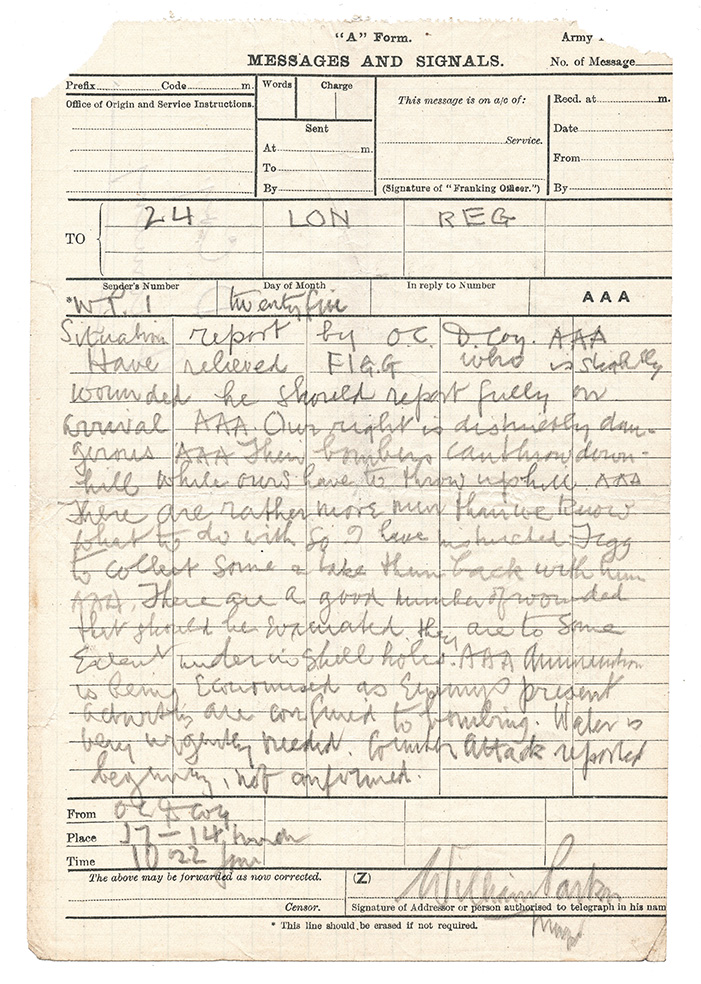 "A" Form. Army
MESSAGES AND SIGNALS. No. of Message
Prefix Code m.
Words Charge
This message is on a/c of:
Recd. at m.
Office of Origin and Service Instructions.
Sent
Service.
Date
At m.
From
To
By
(Signature of "Franking Officer.")
By
TO 24 LON REG
Sender's Number Day of Month In reply to Number AAA
*W.P. 1 twentyfive
Situation report by O.C. D. Coy. AAA
Have relieved FIGG who is slightly
wounded he should report fully on
arrival AAA. Our right is distinctly dan-
gerous AAA Their bombers can throw down-
hill while ours have to throw uphill AAA
There are rather more men than we know
what to do with so I have instructed Figg
to collect some & take them back with him
AAA. There are a good number of wounded
that should be evacuated. they are to some
extent under in shell holes. AAA Ammunition
is being economised as Enemys present
activities are confined to bombing. Water is
very urgently needed. Counter Attack reported
beginning, not confirmed.
From OC D Coy
Place J7 - 14
Time 10-22 pm
The above may be forwarded as now corrected. (Z) William Parker
Censor. Signature of Addressor or person authorised to telegraph in his nam
* This line should be erased if not required.